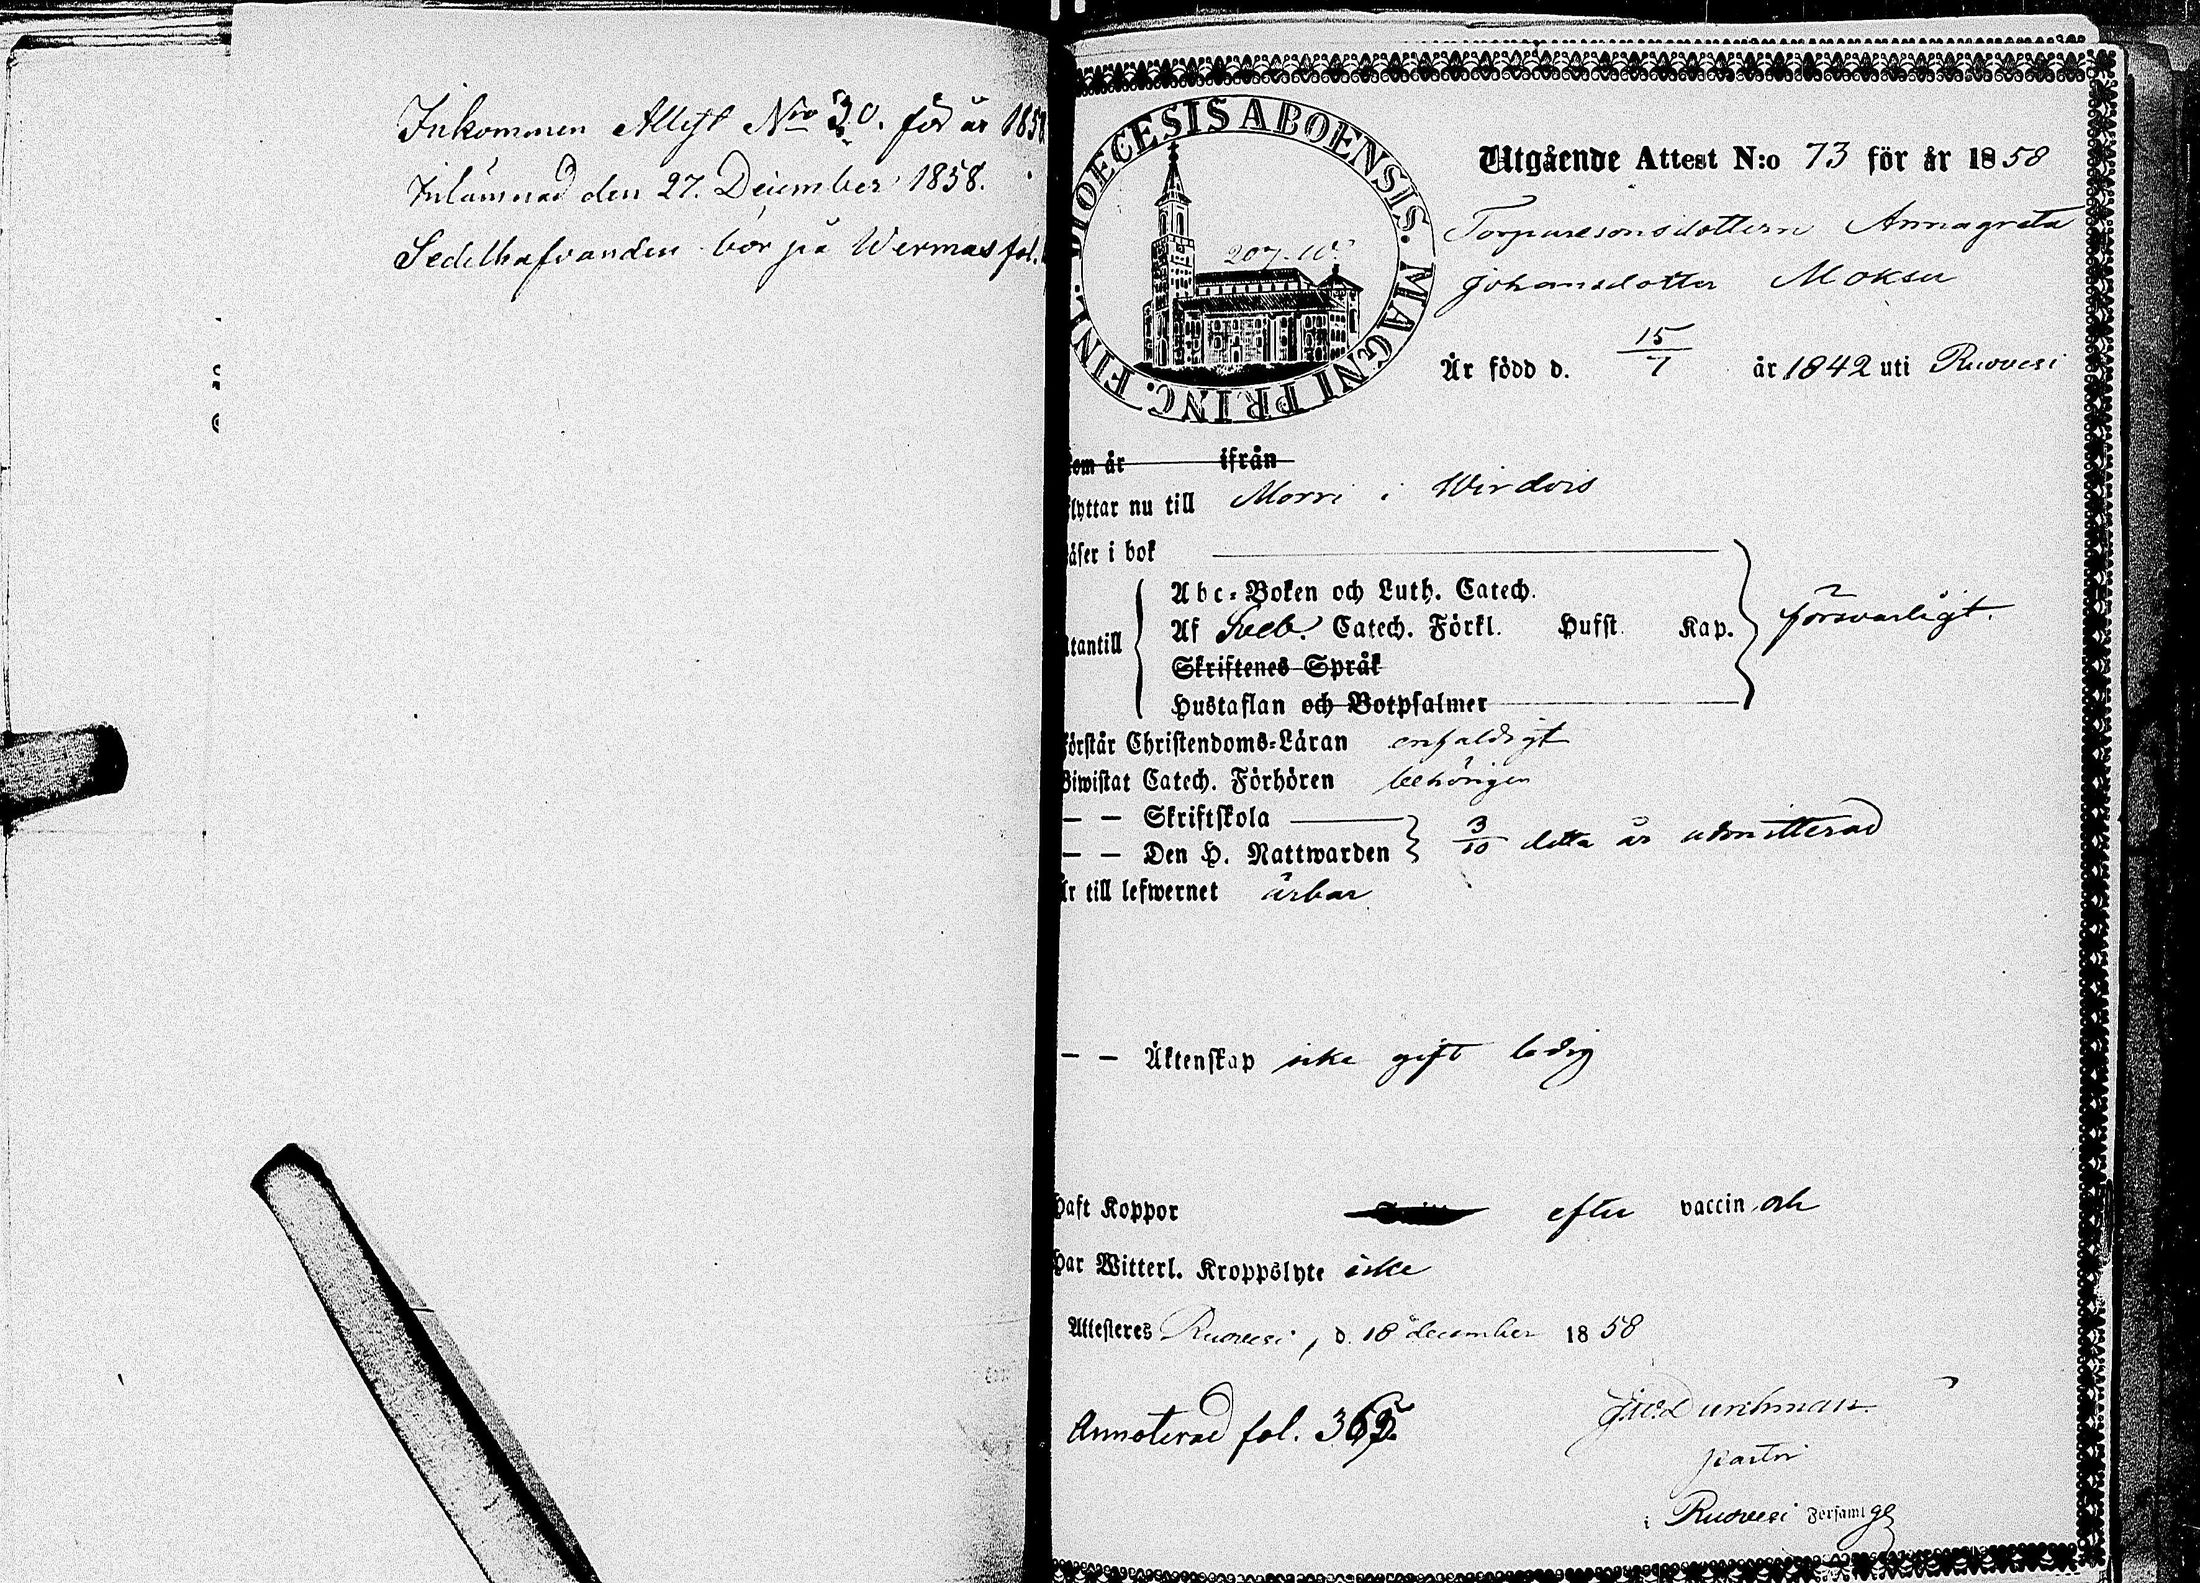 Inkommen Attest Nro 30. för år 185
Inlämnad den 27. December 1858.
Sedelhafvanden bör på Wermas fol.
DIOECESIS ABOENSIS. MAGNI PRINC. FINL.
207.
Utgående Attest N:o 73 för år 1858
Torparesonsdottern Annagreta
Johansdotter Moksu
Är född d. 15/7 år 1842 uti Ruovesi
som är ifrån
flyttar nu till Morri i Wirdois
läser i bok
utantill
Abc-Boken och Luth. Catech.
Af Sveb. Catech. Förkl. Hufst. Kap. försvarligt.
Skriftenes Språk
Hustaflan och Botpsalmer
förstår Christendoms-Läran enfaldigt
Biwistat Catech. Förhören behörigen
— — Skriftskola
— — Den H. Nattwarden 3/10 detta år admitterad
Är till lefwernet ärbar
— — Äktenskap icke gift ledig
Haft Koppor efter vaccin och
Har Witterl. Kroppslyte icke
Attesteres Ruovesi, d. 18 december 1858
Annoterad fol. 365
Durchman
pastor
i Ruovesi Församlge